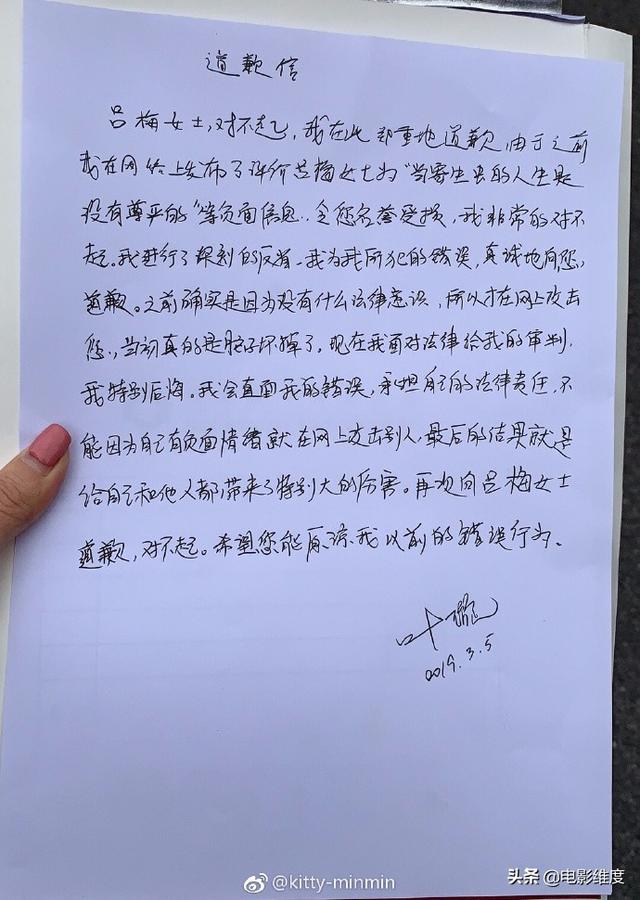 道歉信
吕梅女士，对不起，我在此郑重地道歉，由于之前
我在网络上发布了评价吕梅女士为“当寄生虫的人生是
没有尊严的”等负面信息，令您名誉受损，我非常的对不
起。我进行了深刻的反省，我为我所犯的错误，真诚地向您
道歉。之前确实是因为没有什么法律意识，所以才在网上攻击
您，当初真的是脑子坏掉了，现在我面对法律给我的审判，
我特别后悔。我会直面我的错误，承担自己的法律责任，不
能因为自己有负面情绪就在网上攻击别人，最后的结果就是
给自己和他人都带来了特别大的厉害。再次向吕梅女士
道歉，对不起。希望您能原谅我以前的错误行为。
叶璇
2019.3.5
@kitty-minmin
头条 @电影维度